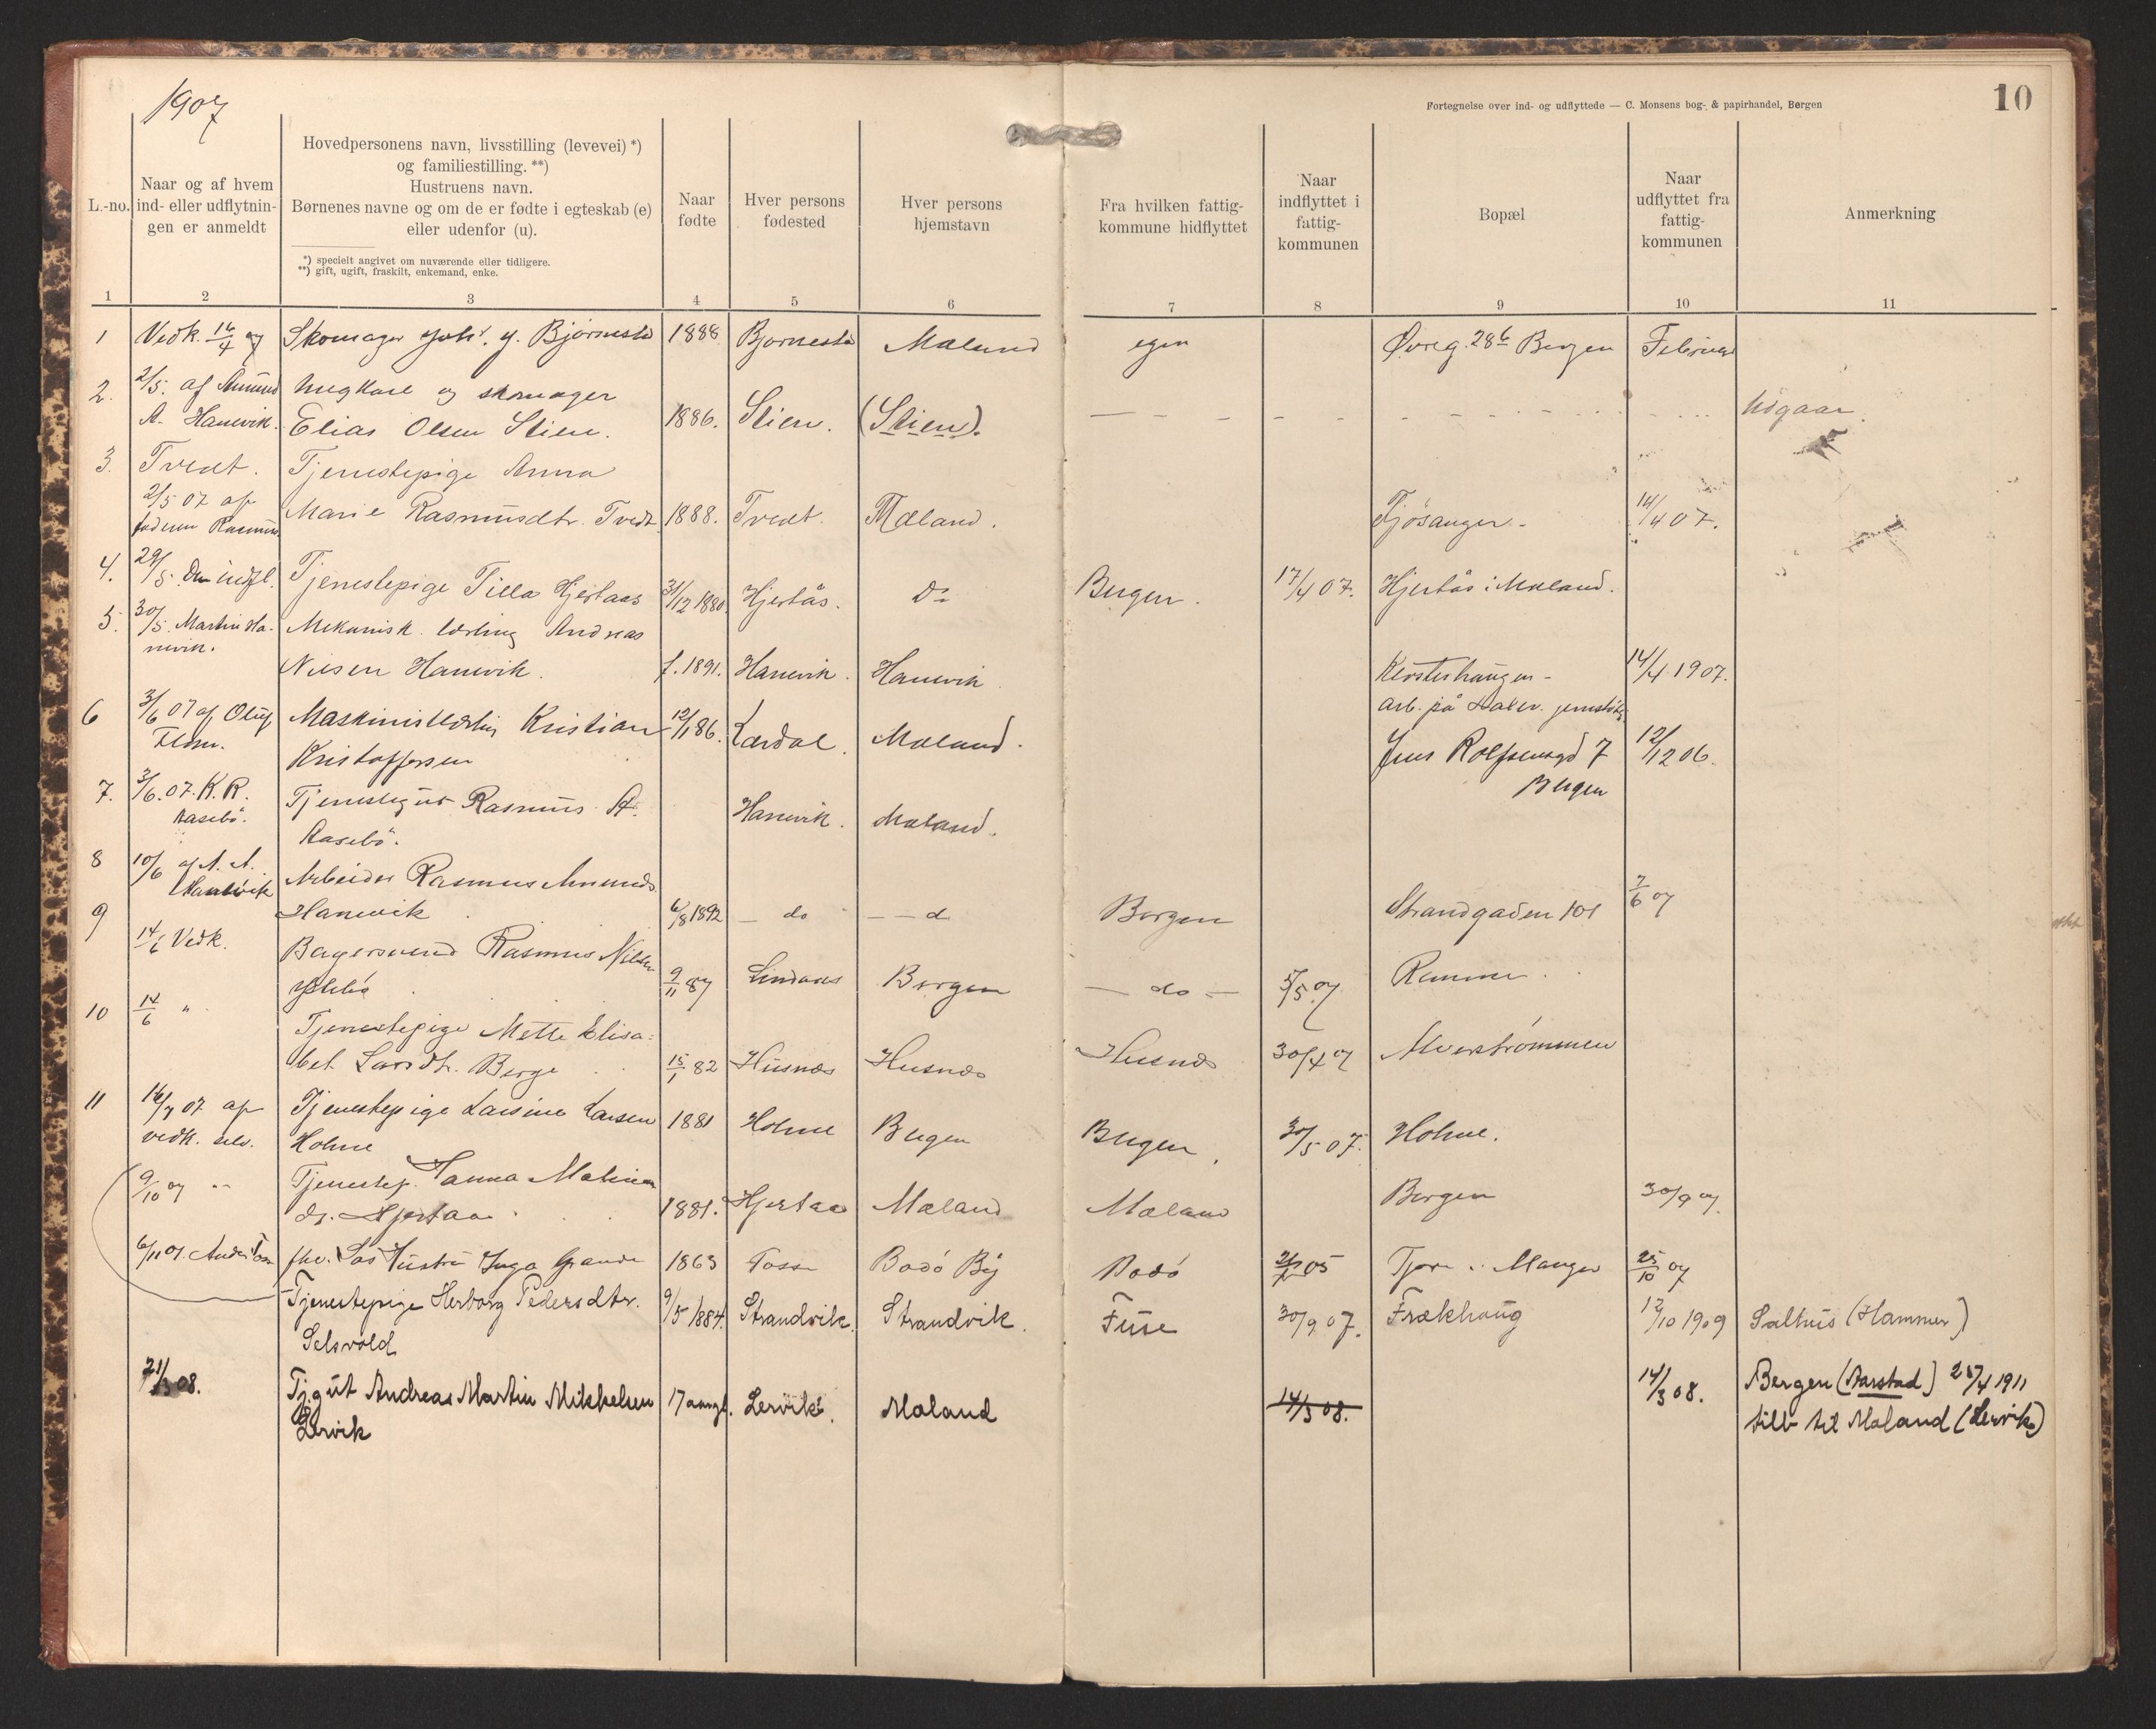 1907
Fortegnelse over ind- og udflyttede — C. Monsens bog- & papirhandel, Bergen
10
L.-no.
Naar og af hvem
ind- eller udflytnin-
gen er anmeldt
Hovedpersonens navn, livsstilling (levevei) *)
og familiestilling. **)
Hustruens navn.
Børnenes navne og om de er fødte i egteskab (e)
eller udenfor (u).
*) specielt angivet om nuværende eller tidligere.
**) gift, ugift, fraskilt, enkemand, enke.
Naar
fødte
Hver persons
fødested
Hver persons
hjemstavn
Fra hvilken fattig-
kommune hidflyttet
Naar
indflyttet i
fattig-
kommunen
Bopæl
Naar
udflyttet fra
fattig-
kommunen
Anmerkning
1 2 3 4 5 6 7 8 9 10 11
1 Vedk. 16/4 07 Skomager J. Bjørnestad 1888 Bjornesta Mæland egen Øvreg. 28 b Bergen Februar
2. 2/5. af Amund Ungkarl og skomager
A. Hanevik. Elias Olsen Stien. 1886. Stien. (Stien). Udgaar
3. Tvedt. Tjenestepige Anna
2/5 07 af
faderen Rasmus Marie Rasmusdtr. Tvedt 1888. Tvedt. Mæland. Fjøsanger - 14/4 07.
4. 29/5. Den indfl. Tjenestepige Tilla Hjertaas 31/12 1880 Hjertås. Do Bergen. 17/4 07. Hjertås i Mæland.
5. 30/5. Martin Ha-
nevik. Mekanisk lærling Andreas
Nilsen Hanevik. f. 1891. Hanevik. Hanevik Kersterhaugen - 14/4 1907.
arb. på
6 3/6 07 af Oluf
Maskinistlærling Kristian
Kristoffersen 12/1 86. Lærdal. Mæland. Jens Rolfsensgd 7 12/12 06.
Bergen
7. 3/6. 07. K. R.
Kasebö. Tjenestegut Rasmus
Kasebö. Hanevik. Mæland.
8 10/6 af A. A.
Hanevik Arbeider Rasmus Amunds.
Hanevik 6/8 1892 — do — d. Bergen Strandgaden 101 7/6 07
9 14/6 Vedk. Bagersvend Rasmus Nilsen
9/11 87 Lindaas Bergen — do — 5/5 07
10 14/6 " Tjenestepige Mette Elisa=
bet Larsdtr. Berge 15/1 82 Husnæs Husnæs Husnæs 30/4 07 Alverströmmen
11 16/7 07 af
vedk. selv. Tjenestepige Larsine Larsen
Holme 1881 Holme Bergen Bergen. 30/5 07. Holme.
9/10 07 " Tjenestep. Hanna
Hjertaas 1881. Hjertaas Mæland Mæland Bergen 30/9 07.
6/11 07. Inga 1863 Fosse Bodö By Bodö 05 Manger 25/10 07
Tjenestepige Herborg Pedersdtr.
Selsvold 9/5 1884. Strandvik. Strandvik. Fuse 30/9 07. Frækhaug 12/10 1909 Salhus (Hammer)
21/3 08. Tjgut Andreas Martin Mikkelsen
Lervik 17 aar gl. Lervik. Mæland 14/3 08. 14/3 08. Bergen (Aarstad) 28/4 1911
tilb til Mæland (Lervik)